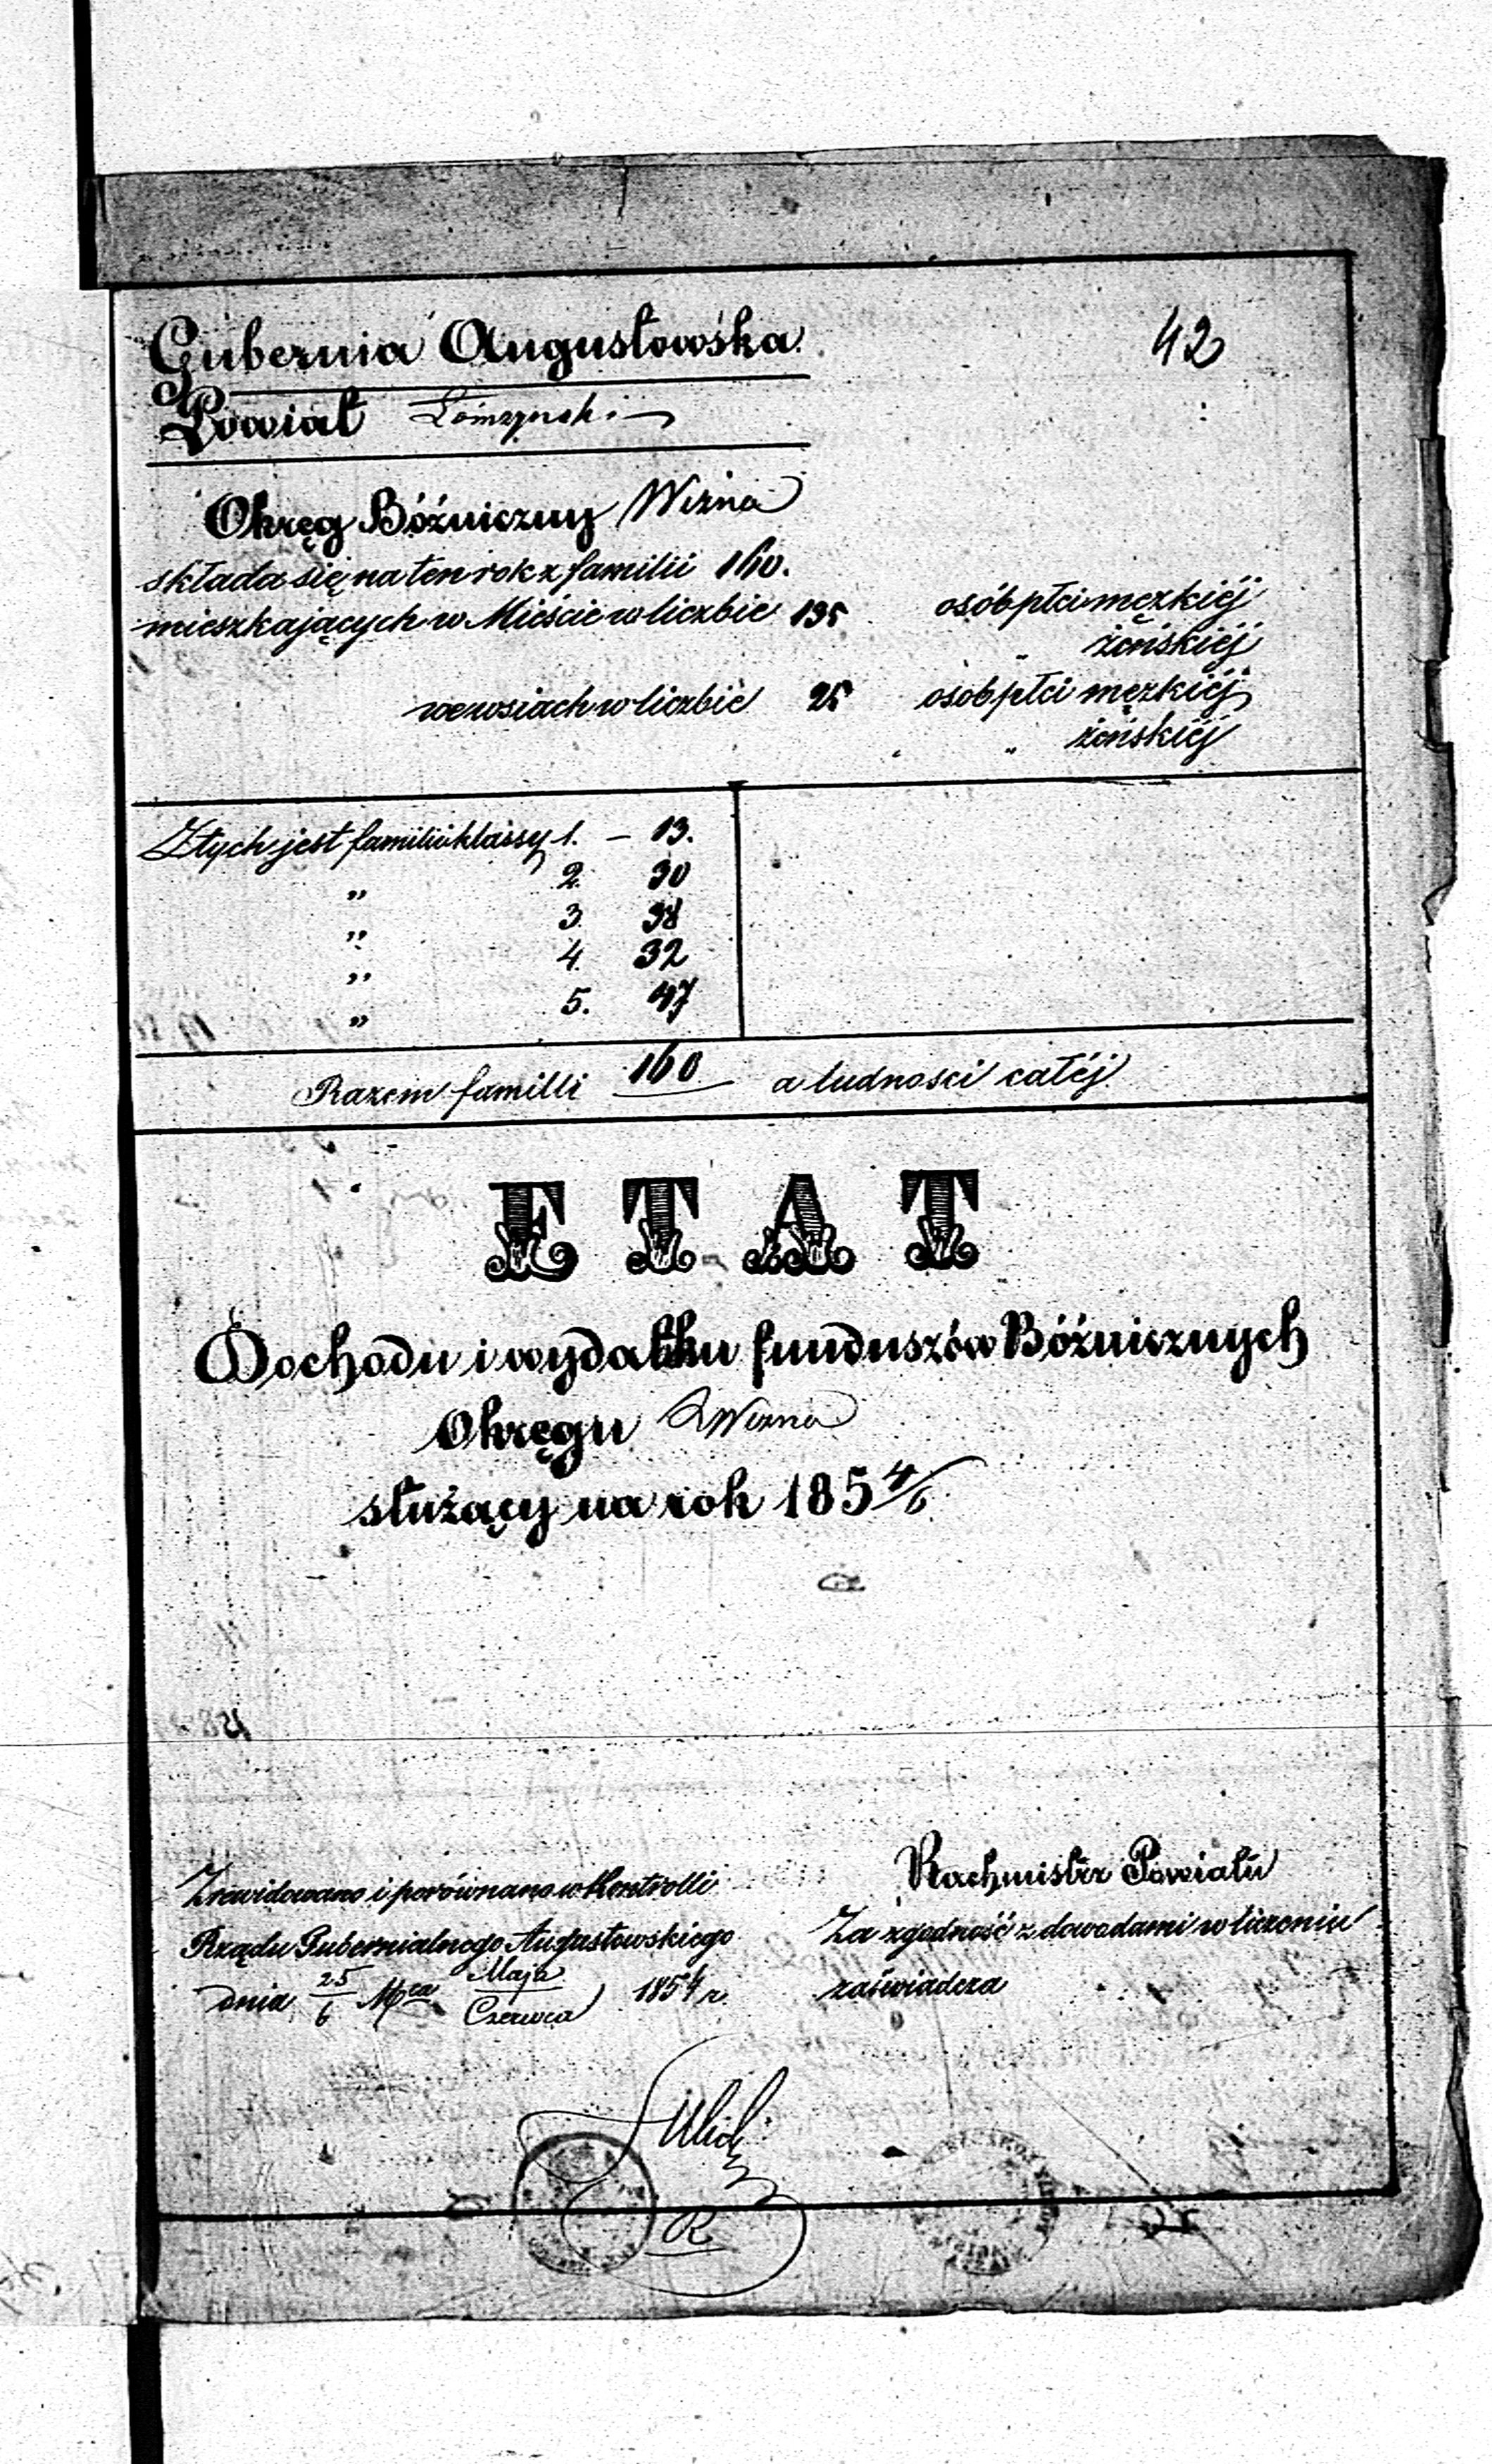 42
Gubernia Augustowska.
Powiat Łomżyński
Okręg Bóżniczny Wizna
składa się na ten rok z familii 160.
mieszkających w Mieście w liczbie 135 osób płci męzkiéj
„ żeńskiéj
we wsiach w liczbie 25 osób płci męzkiéj
„ żeńskiéj
Z tych jest familii klassy 1. — 13.
„ 2. 30
„ 3. 38
„ 4. 32
„ 5. 47
Razem familli 160 a ludnosci całéj
ETAT
Dochodu i wydatku funduszów Bóżnicznych
Okręgu Wizna
służący na rok 185 4/6
Zrewidowano i porównano w Kontrolli
Rządu Gubernialnego Augustowskiego
dnia 25/6 Mca Maja/Czerwca 1854 r.
Rachmistrz Powiatu
Za zgodność z dowodami w liczeniu
zaświadcza